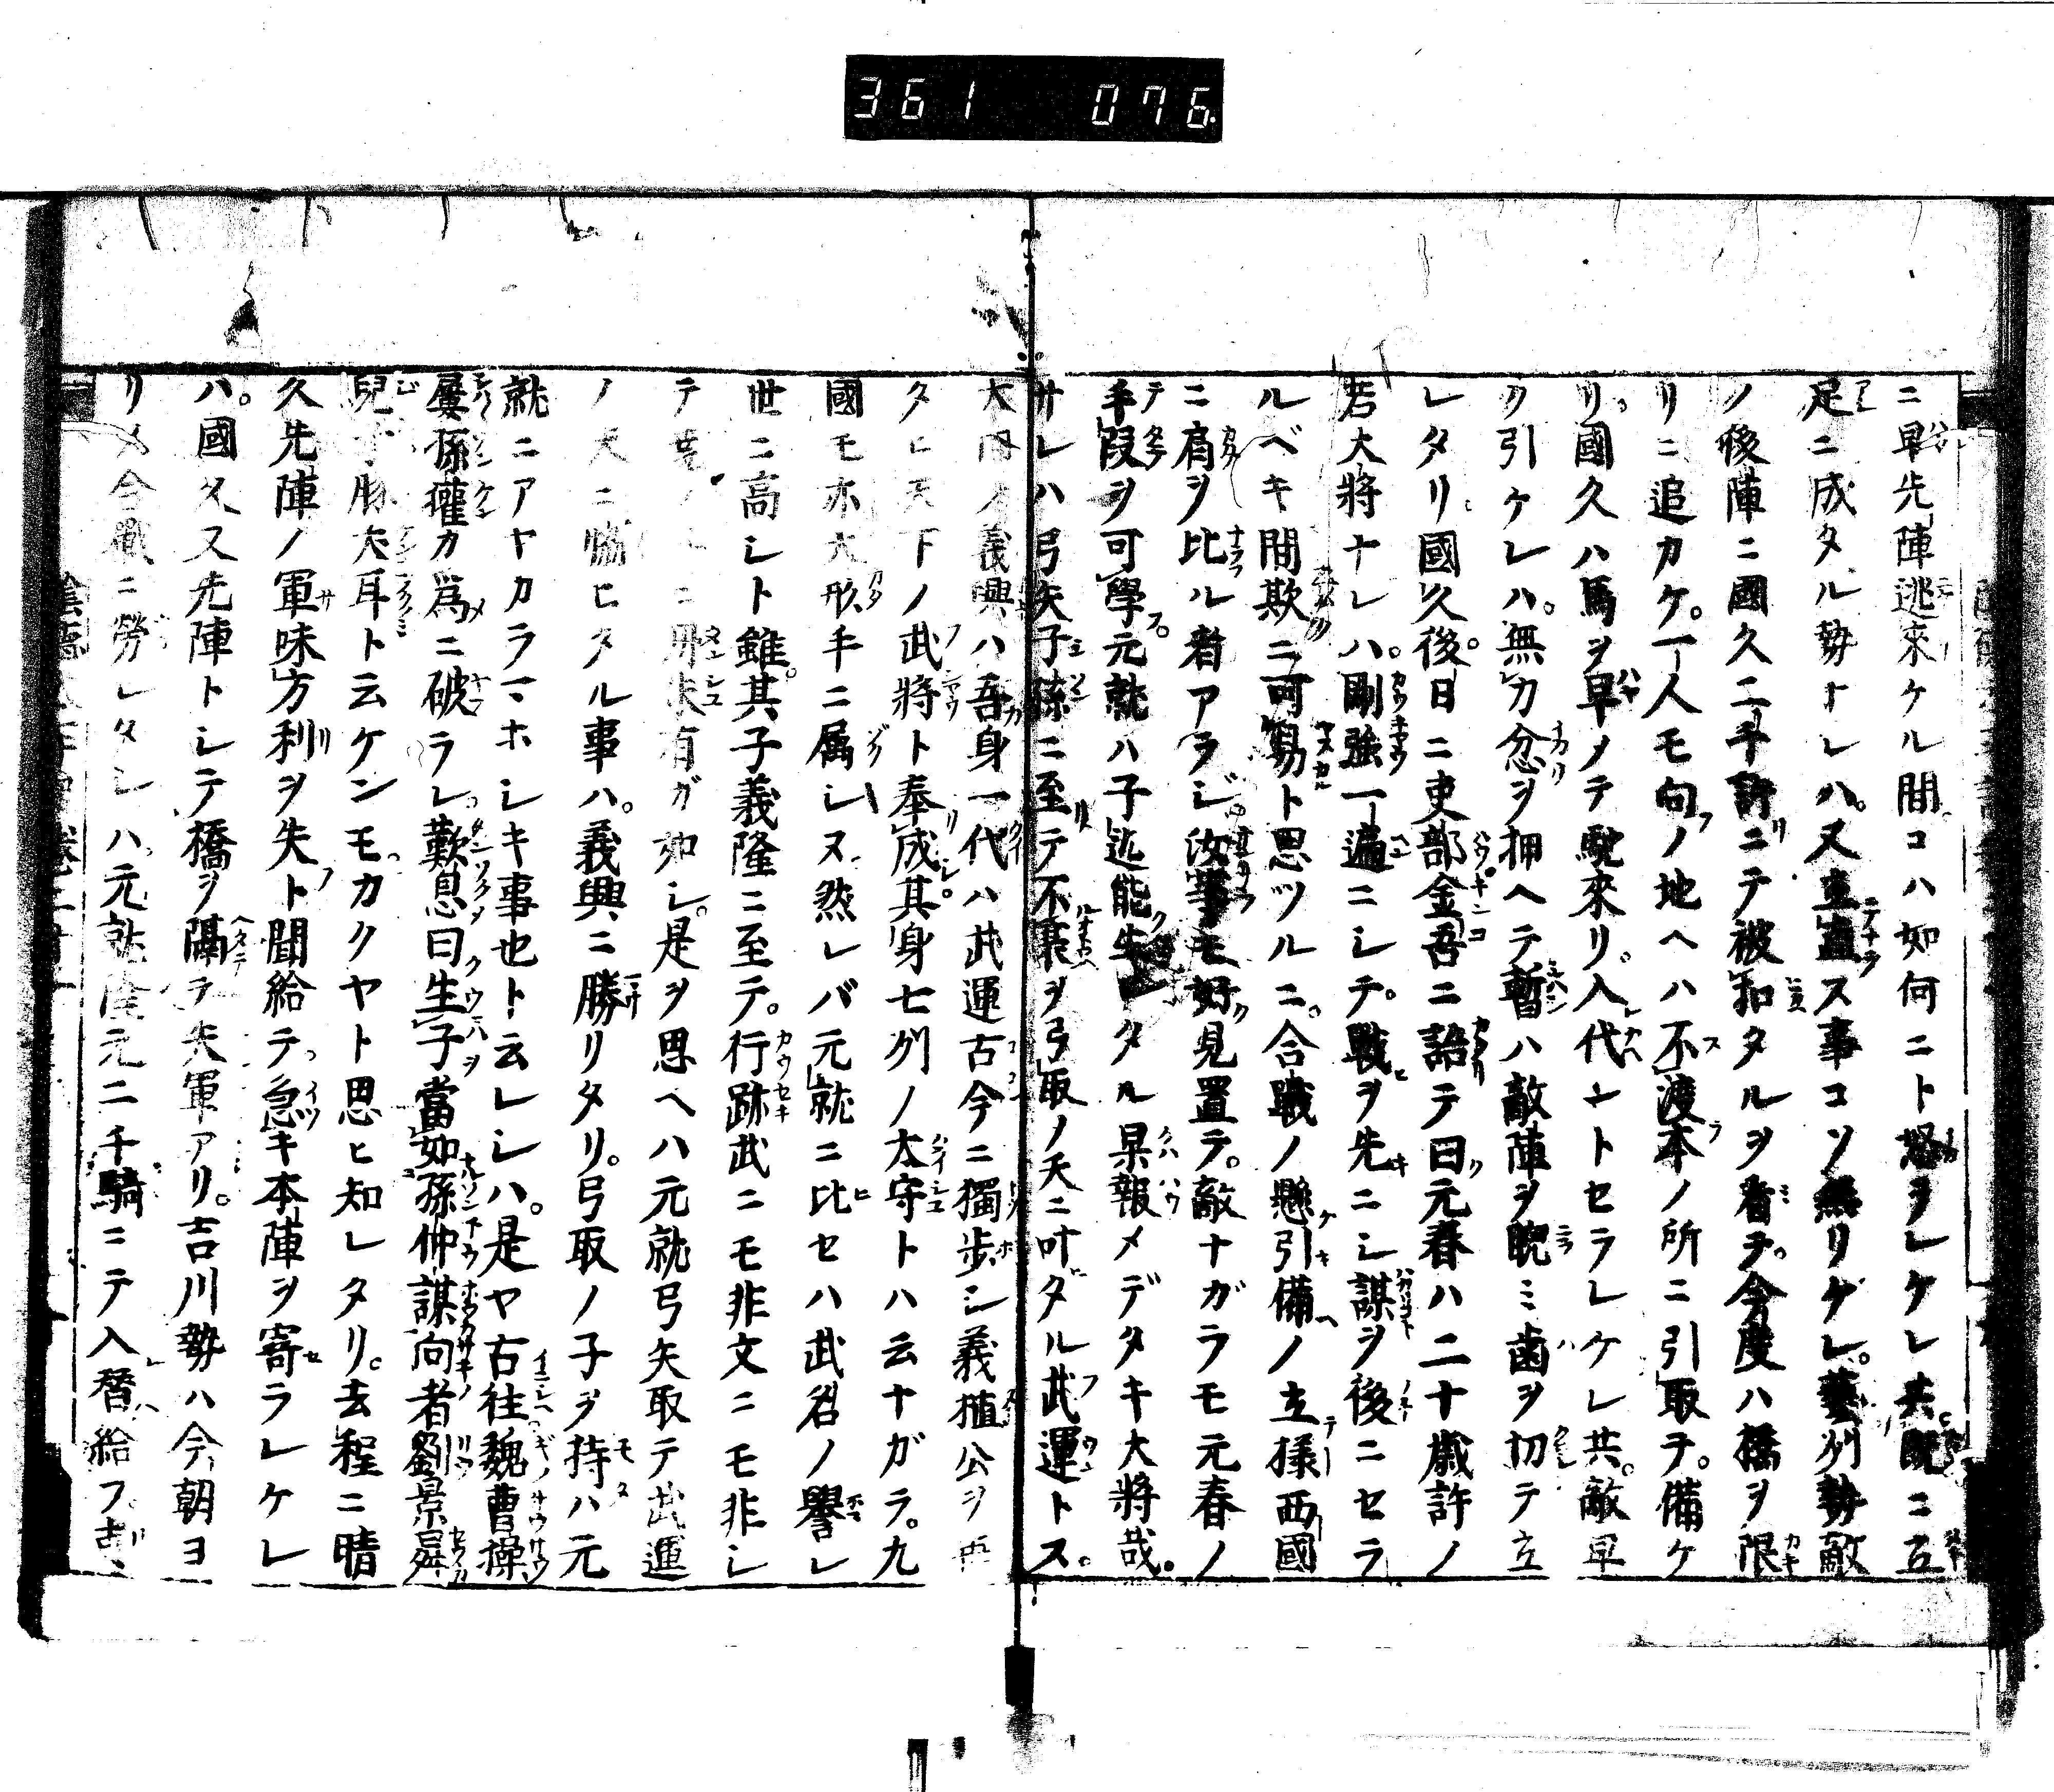 361 076.
ニ早先陣逃來ケル間コハ如何ニト怒ヲレケレ共既ニ立
足ニ成タル勢ナレハ。又立直ス事コソ無リケレ。藝州勢敵
ノ後陣ニ國久二千許ニテ被扣タルヲ看テ。今度ハ橋ヲ限
リニ追カケ。一人モ向ノ地ヘハ不渡本ノ所ニ引取テ。備ケ
リ。國久ハ馬ヲ早メテ駝來リ。入代ントセラレケレ共。敵早
ク引ケレハ。無力忿ヲ押ヘテ暫ハ敵陣ヲ睨ミ歯ヲ切テ立
レタリ。國久後日ニ吏部金吾ニ語テ曰元春ハ二十歳許ノ
若大將ナレハ。剛強一遍ニシテ。戰ヲ先ニシ謀ヲ後ニセラ
ルベキ間欺ニ可易ト思ツルニ。合戰ノ懸引備ノ立様西國
ニ肩ヲ比ル者アラジ。汝等モ好見置テ。敵ナガラモ元春ノ
手段ヲ可學元就ハ子迄能生レタル果報メデタキ大將哉。
サレハ弓矢子孫ニ至テ不衰ヲ弓取ノ天ニ叶ダル武運トス。
大内ノ義興ハ吾身一代ハ武運古今ニ獨歩シ義植公ヲ再
タヒ天下ノ武將ト奉成其身七州ノ太守トハ云ナガラ。九
國モ亦大形手ニ属シヌ。然レバ元就ニ比セハ武名ノ譽レ
世ニ高シト雖。其子義隆ニ至テ。行跡武ニモ非文ニモ非シ
テ ニ 有ガ如シ。是ヲ思ヘハ元就弓矢取テ武運
ノ天ニ協ヒタル事ハ。義興ニ勝リタリ。弓取ノ子ヲ持ハ元
就ニアヤカラマホシキ事也ト云レシハ。是ヤ古徃魏曹操
屢孫權カ爲ニ破ラレ歎息曰生子當如孫仲謀向者劉景舜
兒子豚犬耳ト云ケンモ。カクヤト思ヒ知レタリ。去程ニ晴
久先陣ノ軍味方利ヲ失ト聞給テ。急キ本陣ヲ寄ラレケレ
ハ。國久又先陣トシテ橋ヲ隔テ矢軍アリ。吉川勢ハ今朝ヨ
リノ合戰ニ勞レタレハ。元就隆元二千騎ニテ入替給フ。